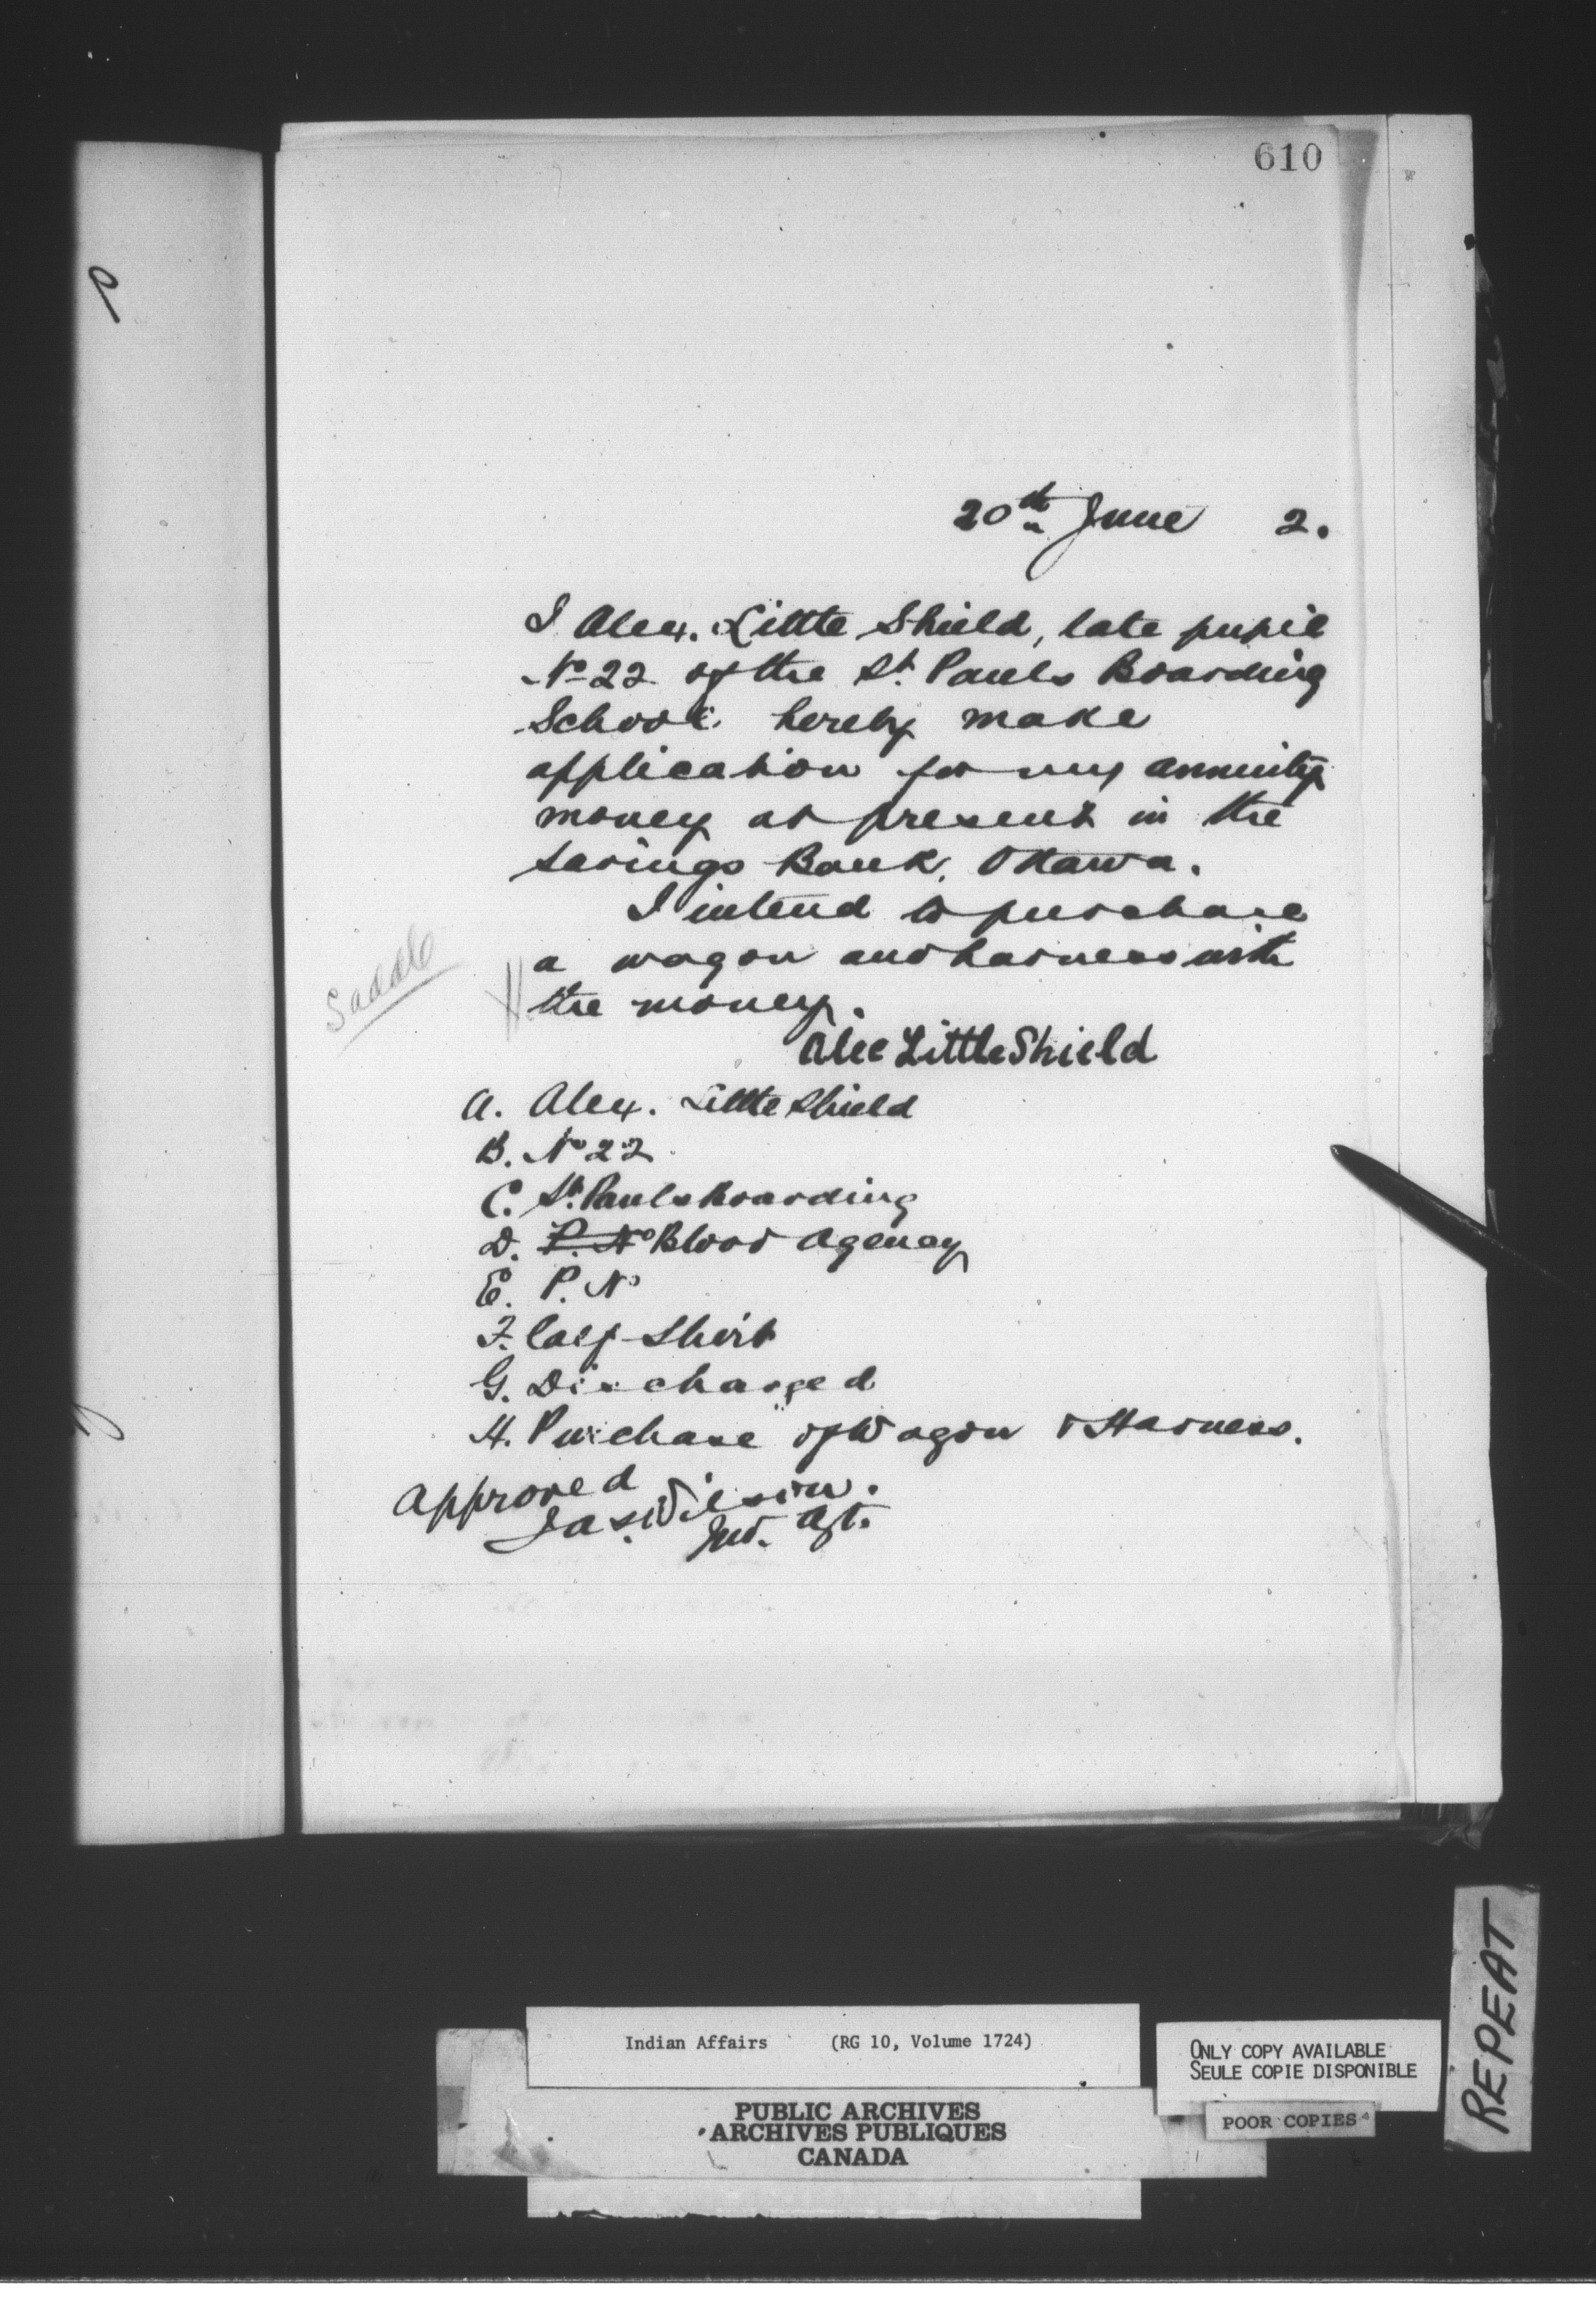 610
20th June 2.
I Alex. Little Shield, late pupil
No 22 of the St. Pauls Boarding
School hereby make
application for my annuity
money at present in the
Savings Bank, Ottawa.
I intend to purchase
a wagon and harness with
the money.
Saddle
Alec Little Shield
A. Alex. Little Shield
B. No 22
C. St. Pauls Boarding
D. P. No Blood Agency
E. P. No
F. Calf Shirt
G. Discharged
H. Purchase of Wagon & Harness.
Approved
Jas. Wilson.
Ind. Agt.
Indian Affairs (RG 10, Volume 1724)
PUBLIC ARCHIVES
ARCHIVES PUBLIQUES
CANADA
ONLY COPY AVAILABLE
SEULE COPIE DISPONIBLE
POOR COPIES
REPEAT